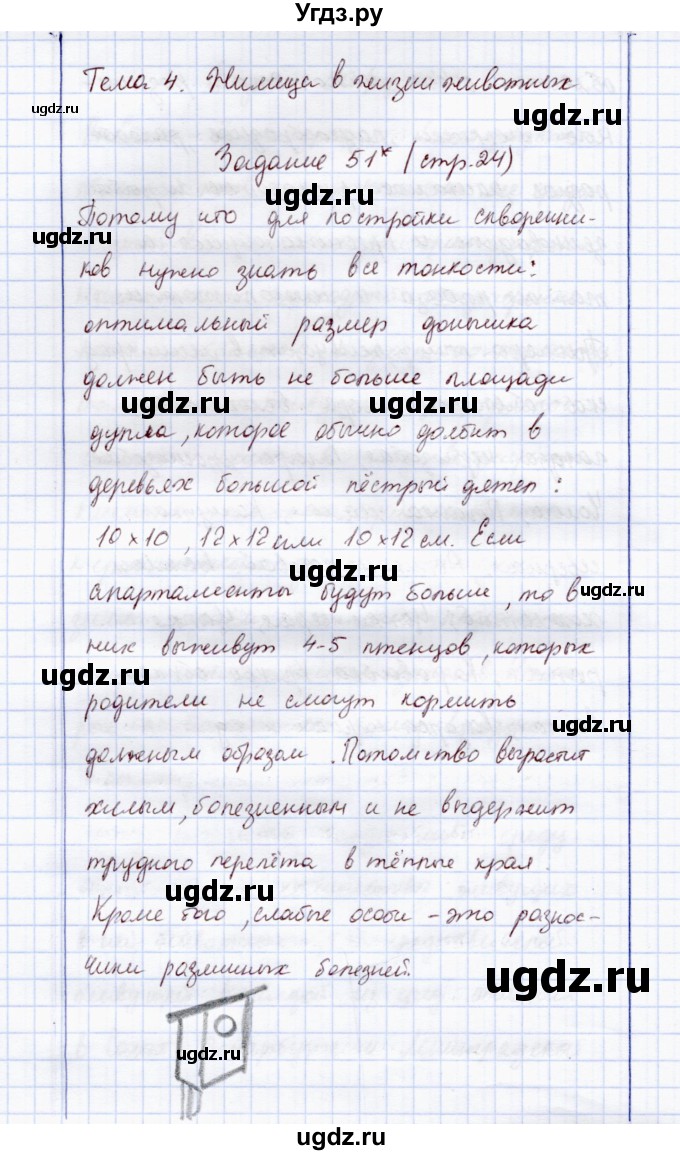 Угдз.ру
Тема 4. Жилища в жизни животных
ugdz.ru
ugdz.ru
Задание 51* (стр.24)
ugdz.ru
Потому что для постройки скворечни-
ugdz.ru
ков нужно знать все тонкости:
оптимальный размер донышка
должен быть не больше площади
ugdz.ru
ugdz.ru
дупла, которое обычно долбит в
деревьях большой пёстрый дятел:
10×10, 12×12 или 10×12 см. Если
ugdz.ru
апартаменты будут больше, то в
ugdz.ru
них выживут 4-5 птенцов, которых
ugdz.ru
родители не смогут кормить
ugdz.ru
должным образом. Потомство вырастит
хилым, болезненным и не выдержит
трудного перелёта в тёплые края.
ugdz.ru
Кроме того, слабые особи - это разнос-
чики различных болезней.
ugdz.ru
ugdz.ru
ugdz.ru